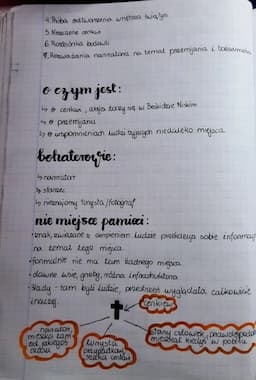 4. Próba odtworzenia wnętrza świątyni
5. Niszczenie cerkwi
6. Rozbiórka budowli
7. Rozważania narratora na temat przemijania i tożsamości
o czym jest:
↳ o cerkwi, akcja toczy się w Beskidzie Niskim
↳ o przemijaniu
↳ o wspomnieniach ludzi żyjących niedaleko miejsca
bohaterowie:
↳ narrator
↳ starzec
↳ nieznajomy turysta/fotograf
nie miejsce pamięci:
• znak, związane z cierpieniem ludzie przekazują sobie informacje
na temat tego miejsca.
• formalnie nie ma tam żadnego miejsca
• dawne wsie, groby, różna infrastruktura
• ślady - tam byli ludzie, przestrzeń wyglądała całkowicie
inaczej.
cerkiew
narrator,
mieszka tam
od jakiegoś
czasu
turysta
przypadkowy,
szuka cerkwi
stary człowiek, prawdopodobnie
mieszkał kiedyś w pobliżu